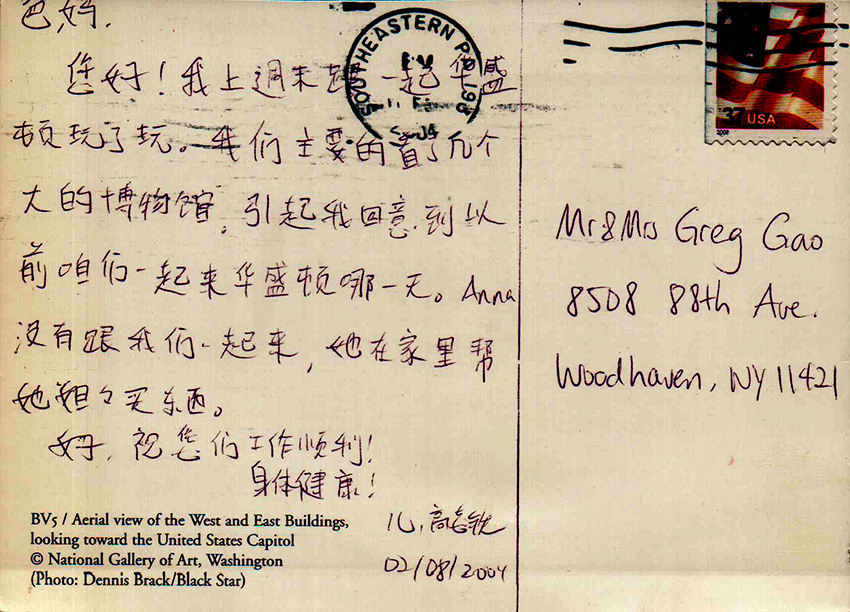 爸妈,
您好!我上週末 一起华盛
顿玩了玩。我们主要的看了几个
大的博物馆,引起我回意到以
前咱们一起来华盛顿哪一天。Anna
没有跟我们一起来,她在家里帮
她 买东西。
好,祝您们工作顺利!
身体健康!
儿,高
02/08/2004
BV5 / Aerial view of the West and East Buildings,
looking toward the United States Capitol
© National Gallery of Art, Washington
(Photo: Dennis Brack/Black Star)
SOUTHEASTERN P
37 USA
2002
Mr & Mrs Greg Gao
8508 88th Ave.
Woodhaven, NY 11421